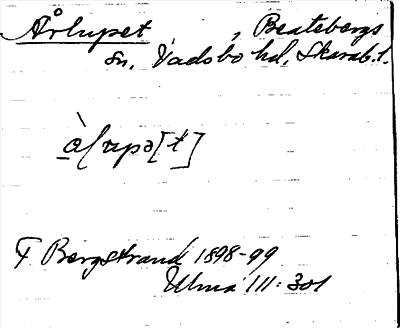 Årlupet, Beatebergs
sn, Vadsbo hd, Skarab.l.
å̀ſrupə[t]
F Bergstrand 1898-99
Ulma 111:301